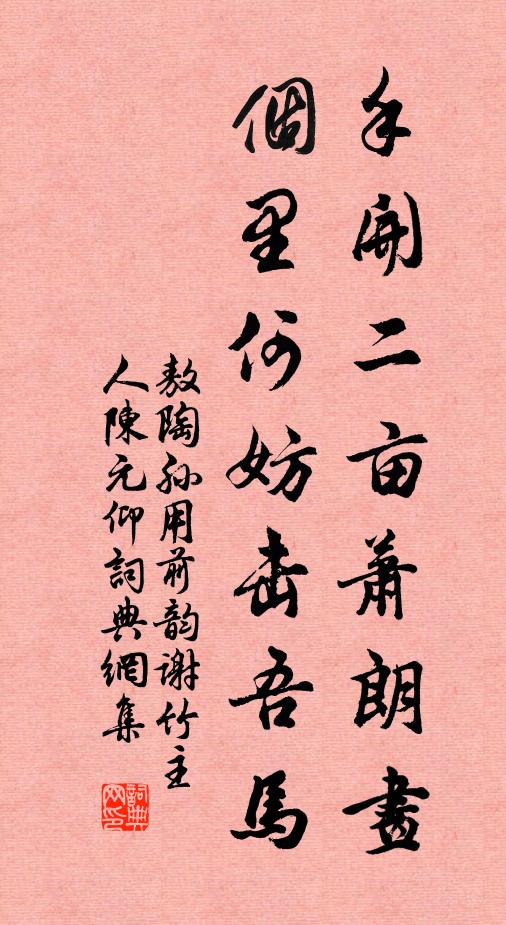 手開二亩蕭朗畫
個里何妨击吾馬
敖陶孙用前韵謝竹主
人陳元仰詞典網集
詞典网印